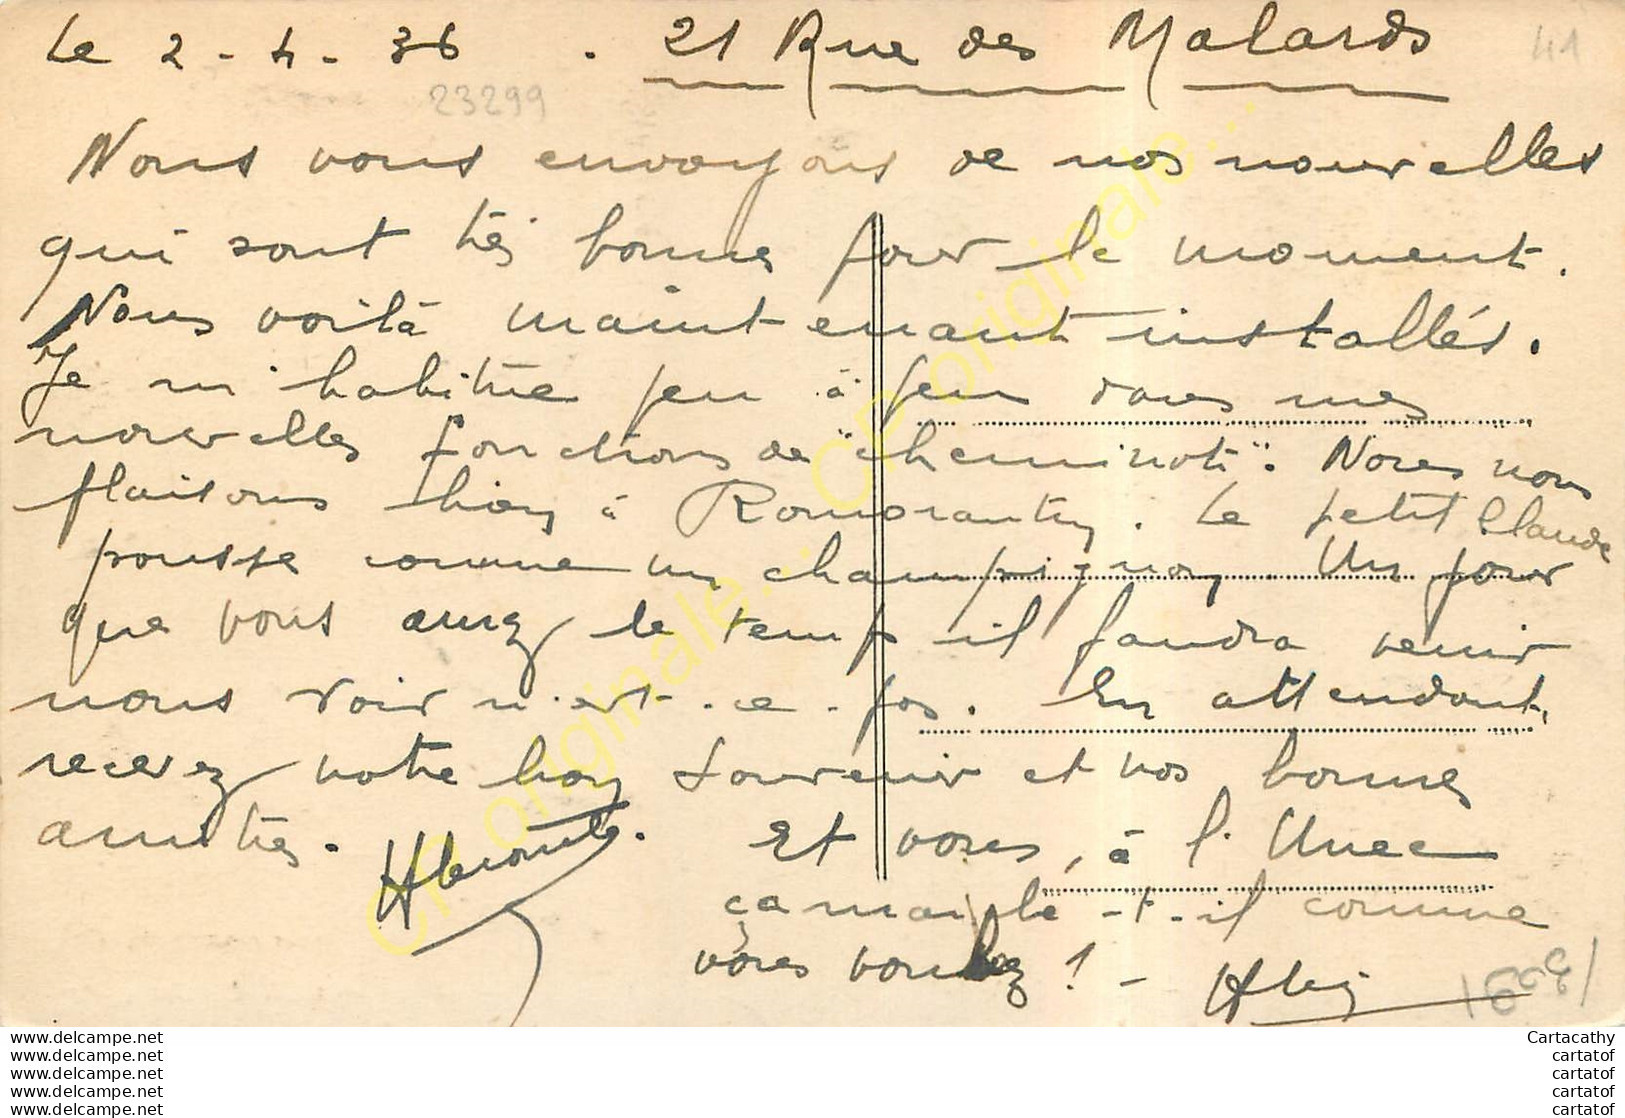 Le 2-4-36. 21 Rue des Malards
41
23299
Nous vous envoyons de nos nouvelles
qui sont très bonnes pour le moment.
Nous voilà maintenant installés.
Je m'habitue peu à peu dans mes
nouvelles fonctions de "cheminot". Nous nous
plaisons bien à Romorantin. Le petit Claude
pousse comme un champignon. Un jour
que vous aurez le temps il faudra venir
nous voir n'est-ce-pas. En attendant,
recevez notre bon souvenir et nos bonnes
amitiés.
Et vous, à l'
ça marche-t-il comme
vous voulez! -
CP originale... CP originale... CP originale...
www.delcampe.net Cartacathy
www.delcampe.net cartatof
www.delcampe.net cartatof
www.delcampe.net cartatof
www.delcampe.net cartatof